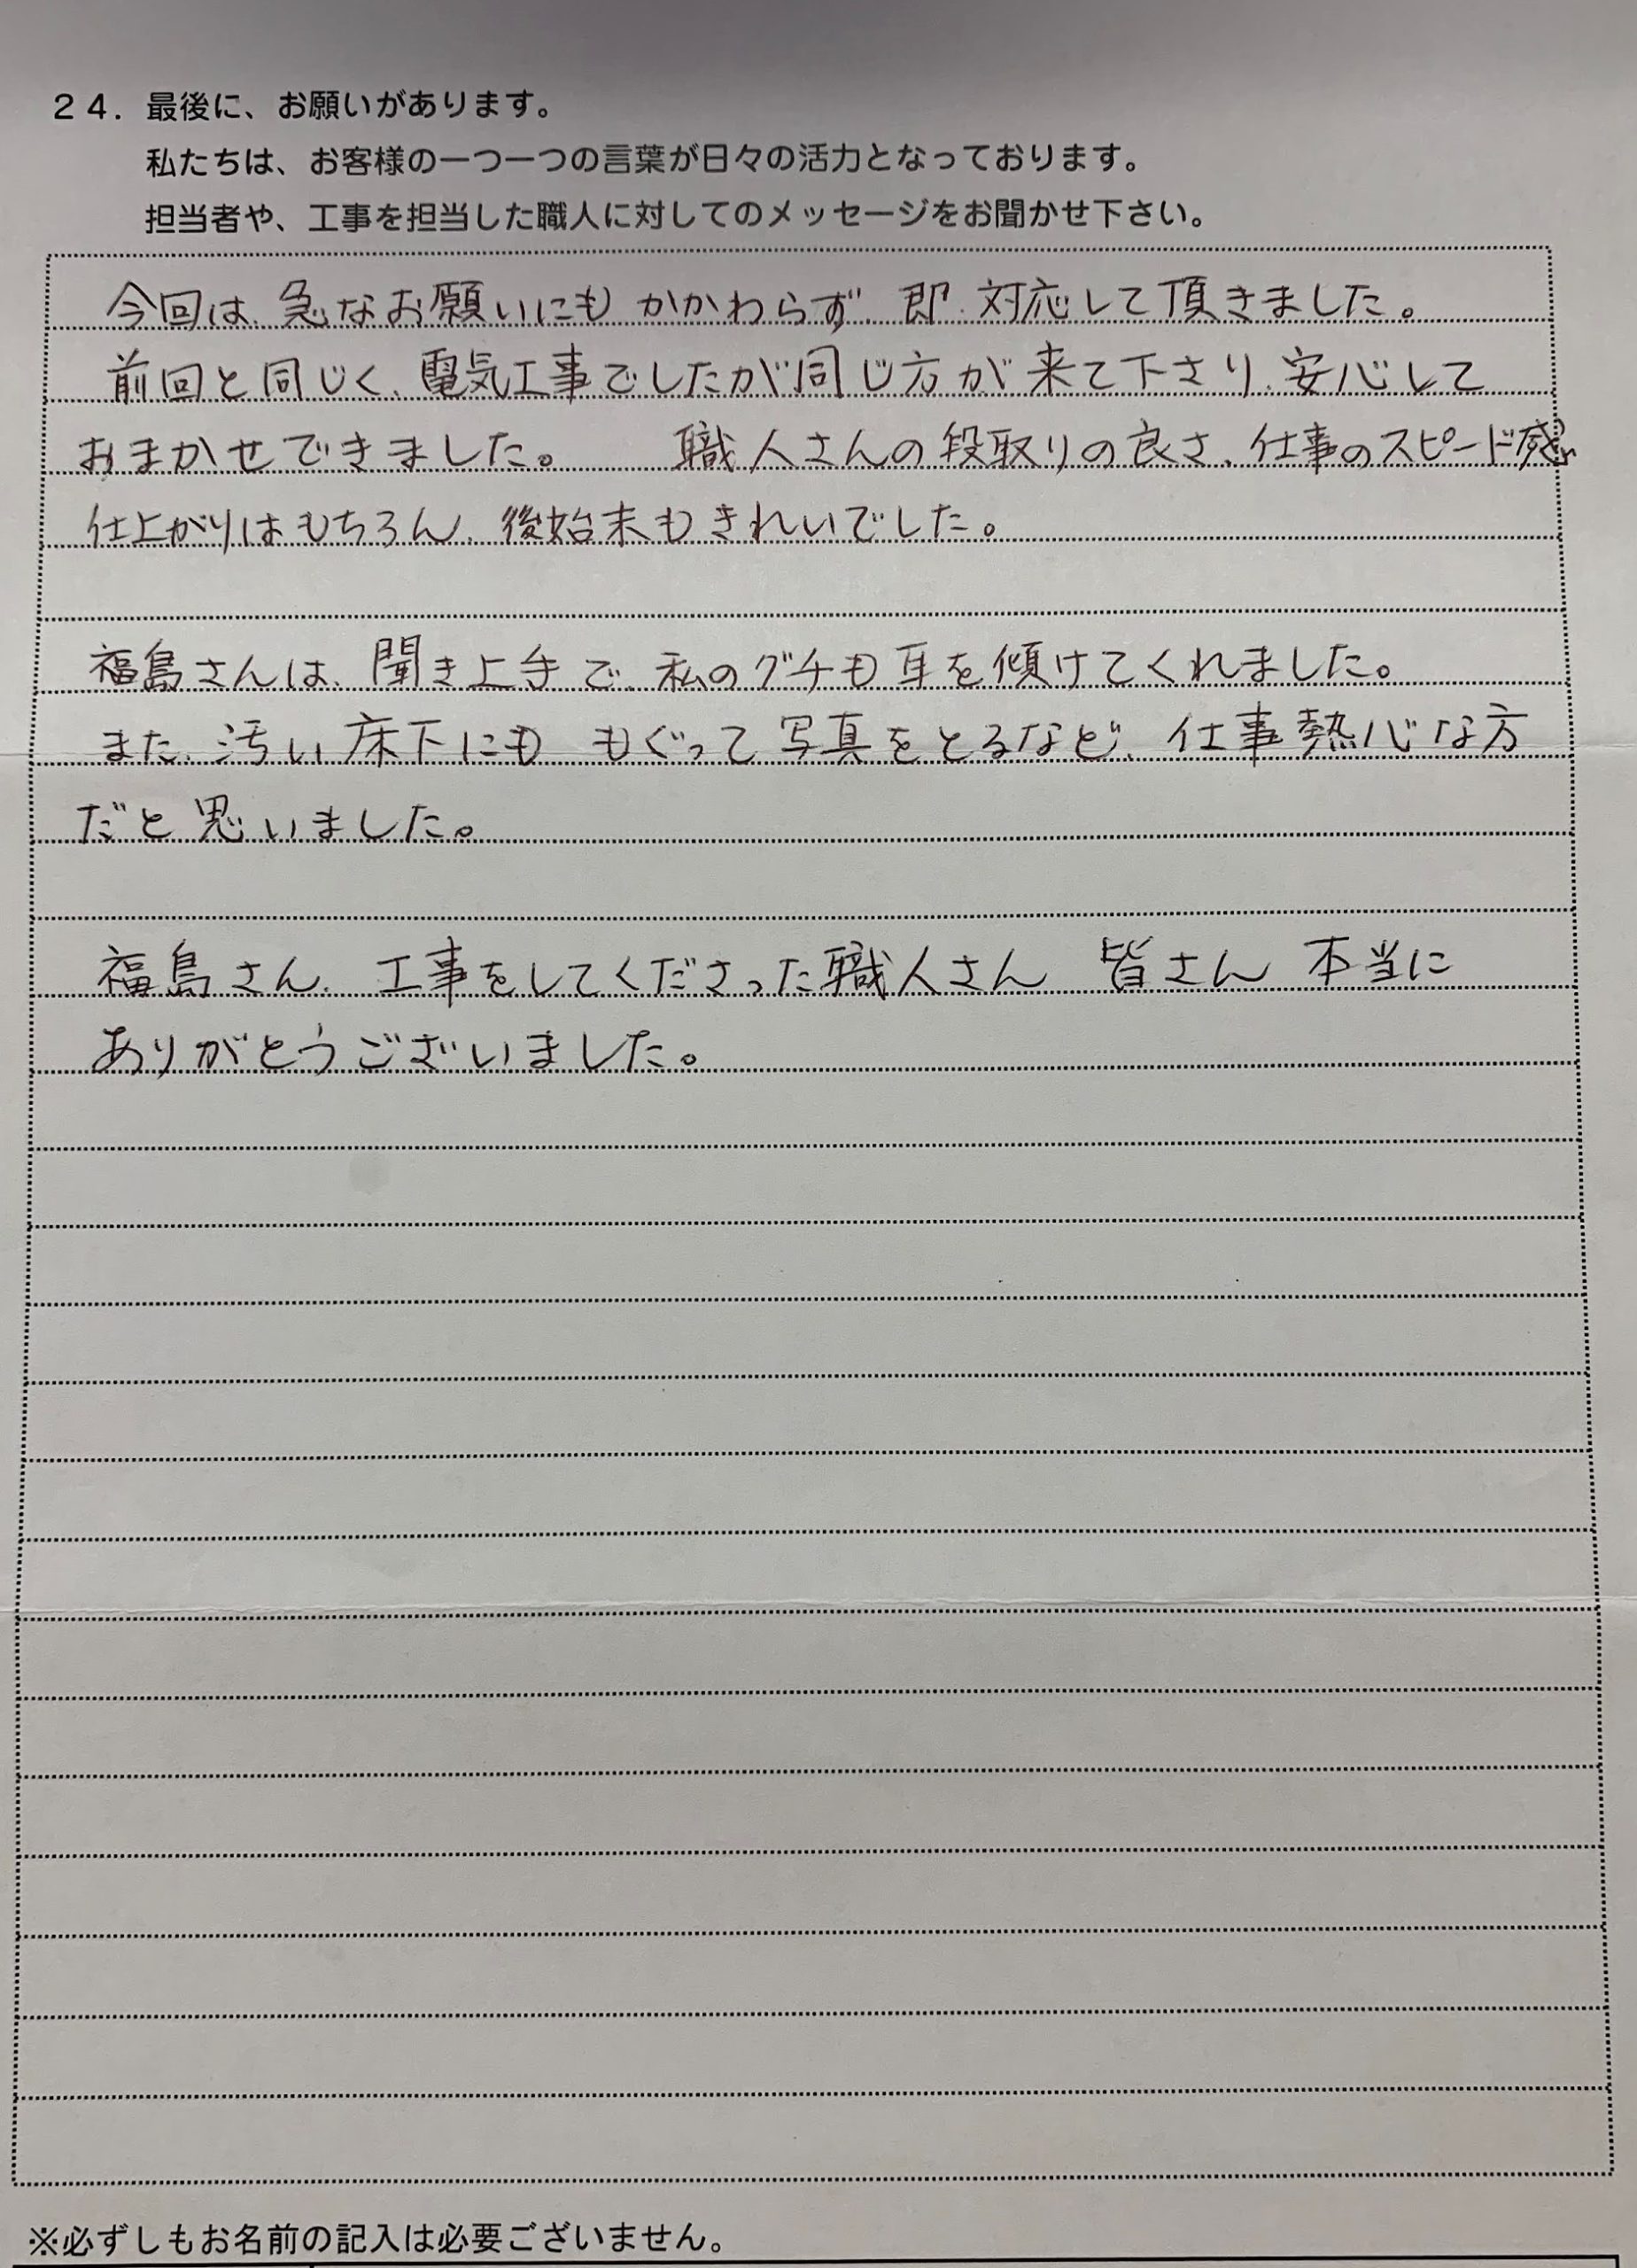 24. 最後に、お願いがあります。
私たちは、お客様の一つ一つの言葉が日々の活力となっております。
担当者や、工事を担当した職人に対してのメッセージをお聞かせ下さい。
今回は、急なお願いにもかかわらず、即、対応して頂きました。
前回と同じく、電気工事でしたが同じ方が来て下さり、安心して
おまかせできました。 職人さんの段取りの良さ、仕事のスピード感、
仕上がりはもちろん、後始末もきれいでした。
福島さんは、聞き上手で、私のグチも耳を傾けてくれました。
また、汚い床下にも もぐって写真をとるなど、仕事熱心な方
だと思いました。
福島さん、工事をしてくださった職人さん 皆さん 本当に
ありがとうございました。
※必ずしもお名前の記入は必要ございません。